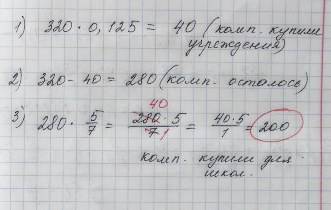 1) 320 · 0,125 = 40 (комп. купили
учреждения)
2) 320 - 40 = 280 (комп. осталось)
3) 280 · 5/7 = 280 · 5/7 = 40 · 5/1 = 200
40
1
комп. купили для
школ.